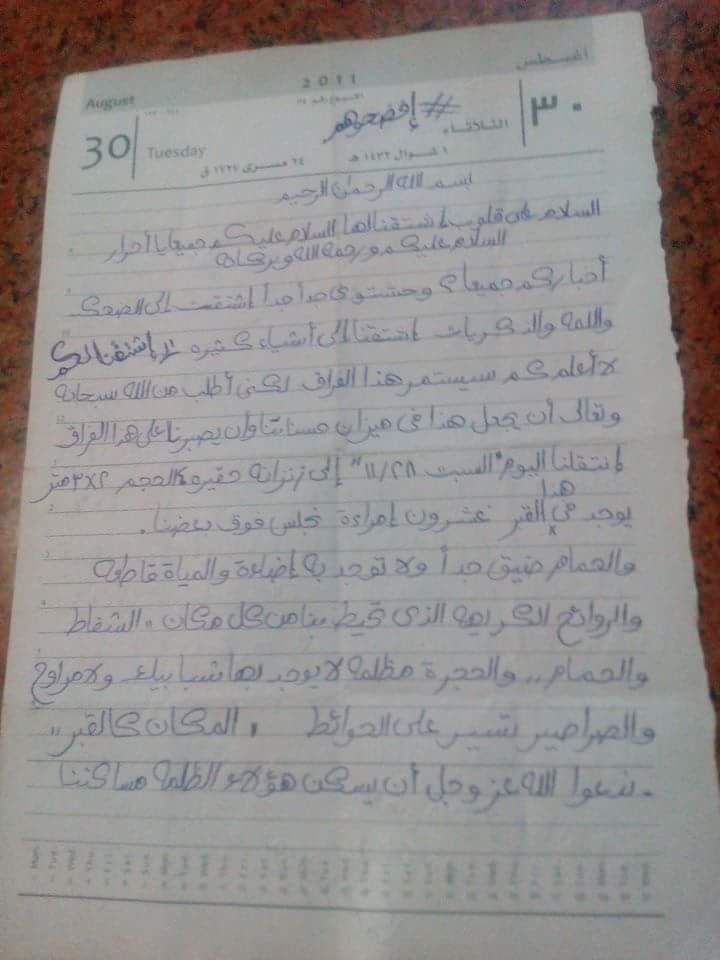 August 2011 أغسطس
30 Tuesday الثلاثاء ٣٠
#إفضحوهم
١ شوال ١٤٣٢ هـ ٢٤ مسرى ١٧٢٧ ق
بسم الله الرحمن الرحيم
السلام على قلوب إشتقنا لها السلام عليكم جميعا يا أحرار
السلام عليكم ورحمة الله وبركاته
أخباركم جميعا؟ وحشتوني جدا جدا إشتقت إلى الضحك
واللمة والذكريات إشتقنا إلى أشياء كثيره إشتقنا لكم
لا أعلم كم سيستمر هذا الفراق لكني أطلب من الله سبحانه
وتعالى أن يجعل هذا في ميزان حسناتنا وأن يصبرنا على هذا الفراق
إنتقلنا اليوم "السبت ١١/٢٨" إلى زنزانة حقيره الحجم ٢×٣ متر
يوجد في هذا القبر عشرون إمراءة نجلس فوق بعضنا.
والحمام ضيق جداً ولا توجد به إضاءة والمياة قاطعه
والروائح الكريهه الذي تحيط بنا من كل مكان، الشفاط
والحمام,, والحجرة مظلمه لا يوجد بها شبابيك ولا مراوح
والصراصير تسير على الحوائط ، المكان كالقبر,,
. ندعوا الله عز وجل أن يسكن هؤلاء الظلمه مساكننا